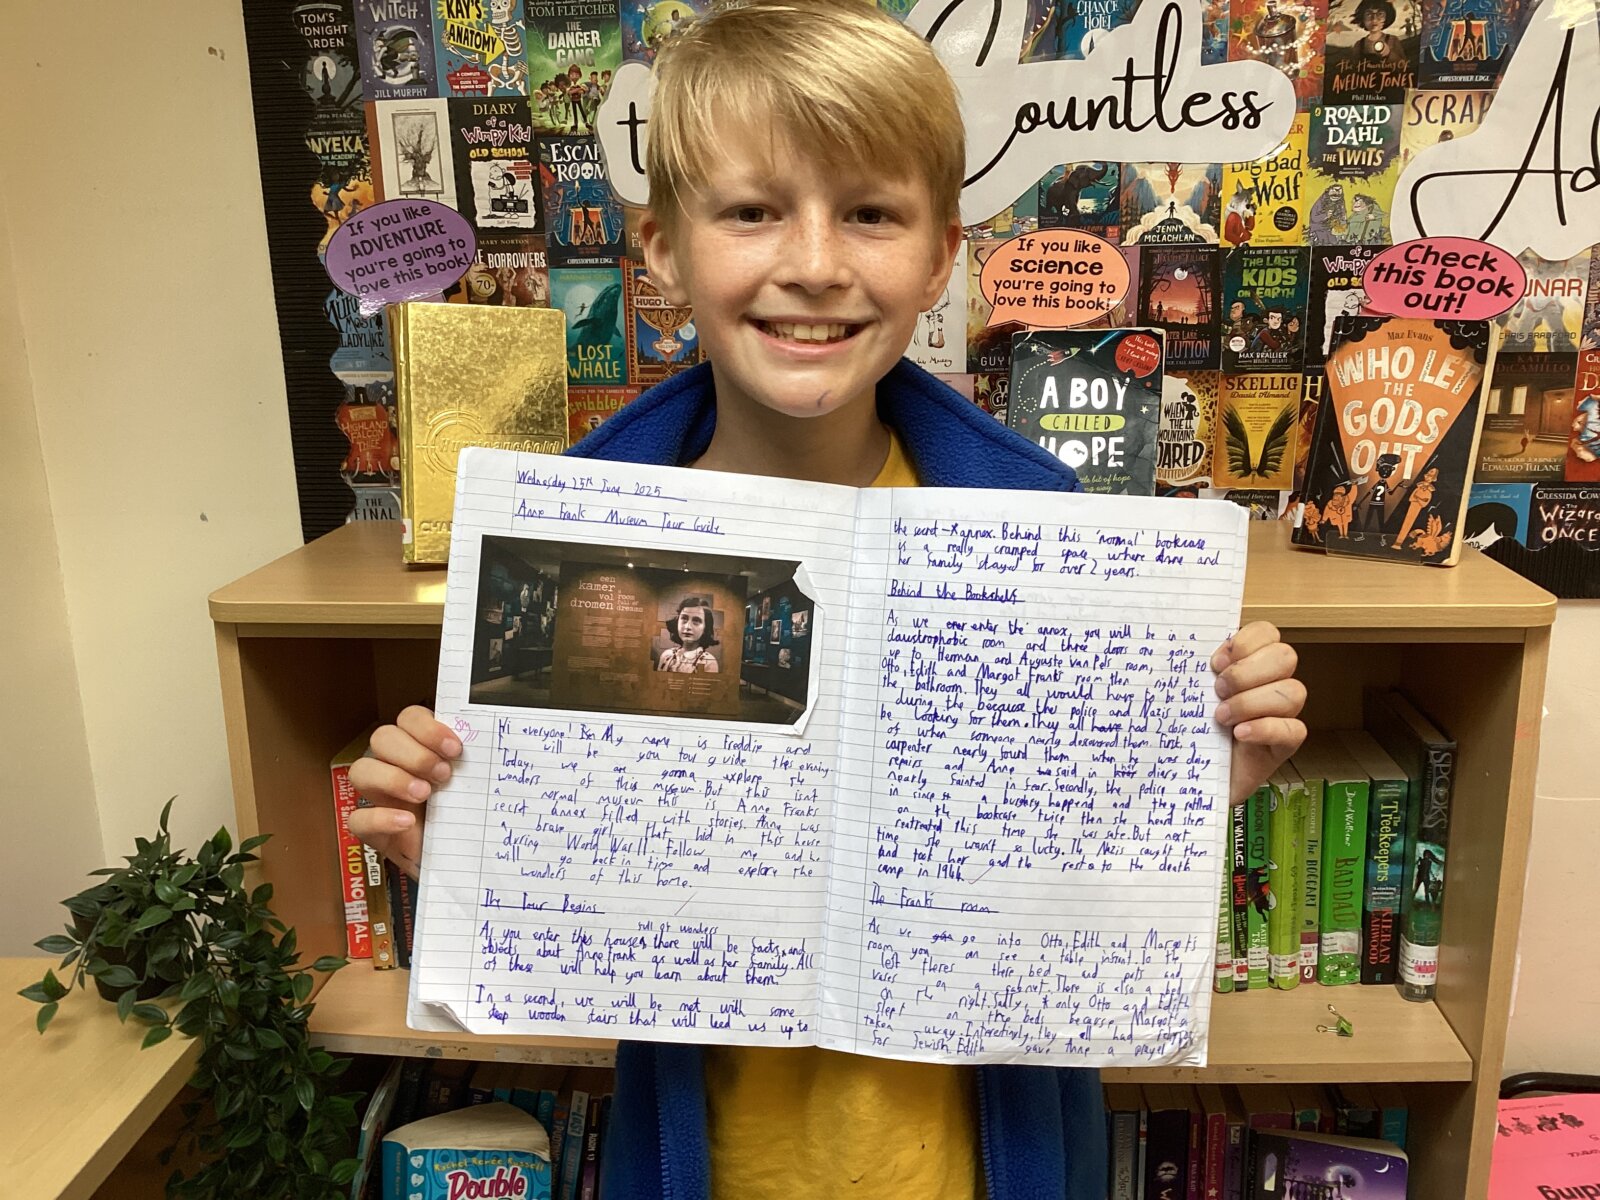 TOM'S
MIDNIGHT
GARDEN
WITCH
JILL MURPHY
KAY'S
ANATOMY
TOM FLETCHER
THE
DANGER
GANG
DIARY
of a
Wimpy Kid
OLD SCHOOL
ESCAPE
ROOM
CHRISTOPHER EDGE
NYEKA
If you like
ADVENTURE
you're going to
love this book!
MARY NORTON
THE BORROWERS
LOST
WHALE
HUGO
Scribble
THE
FINAL
Countless
CHANCE
HOTEL
AVELINE JONES
Phil Hickes
CHRISTOPHER EDGE
ROALD
DAHL
THE TWITS
SCRAP
Big Bad
Wolf
JENNY
MCLACHLAN
THE LAST
KIDS
ON EARTH
MAX BRALLIER
If you like
science
you're going to
love this book!
Check
this book
out!
A BOY
CALLED
HOPE
SKELLIG
David Almond
Maz Evans
WHO LET
THE
GODS
OUT
CHRIS BRADFORD
KATE
DiCAMILLO
EDWARD TULANE
CRESSIDA COW
The
Wizards
of
ONCE
Wednesday 25th June 2025
Anne Frank Museum Tour Guide
een
kamer
vol
dromen
a
room
full of
dreams
Hi everyone! My name is Freddie and
I will be you tour guide this evening.
Today, we are gonna explore the
wonders of this museum. But this isn't
a normal museum this is Anne Franks
secret annex filled with stories. Anne was
a brave girl that hid in this house
during World War II. Follow me and we
will go back in time and explore the
wonders of this home.
The Tour Begins
full of wonders
As you enter this house, there will be facts, and
objects about Anne Frank as well as her family. All
of these will help you learn about them.
In a second, we will be met with some
steep wooden stairs that will lead us up to
the secret annex. Behind this 'normal' bookcase
is a really cramped space, where Anne and
her family stayed for over 2 years.
Behind the Bookshelf
As we enter the annex, you will be in a
claustrophobic room and three doors one going
up to Herman and Auguste van Pels room, left to
Otto, Edith and Margot Frank's room then right to
the bathroom. They all would have to be quiet
during the because the police and Nazis would
be looking for them. They all had 2 close calls
of when someone nearly discovered them. First, a
carpenter nearly found them when he was doing
repairs and Anne said in her diary she
nearly fainted in fear. Secondly, the police came
in since a burglary happend and they rattled
on the bookcase twice then she heard steps
reatreated this time she was safe. But next
time she wasn't so lucky. The Nazis caught them
and took her and the rest to the death
camp in 1944.
The Frank's room
As we go into Otto, Edith and Margot's
room you can see a table infront. To the
left theres three bed and pots and
vases on a cabnet. There is also a bed
on the right. Sadly, only Otto and Edith
slept on the beds because Margot
taken away. Interestingly, they all had
for Jewish. Edith gave Anne a prayer
KID NORMAL
HAMISH
THE BOGGART
David Walliams
BAD DAD
The TreeKeepers
KIERAN
LARWOOD
SPOOK'S
Rachel Renée Russell
Double